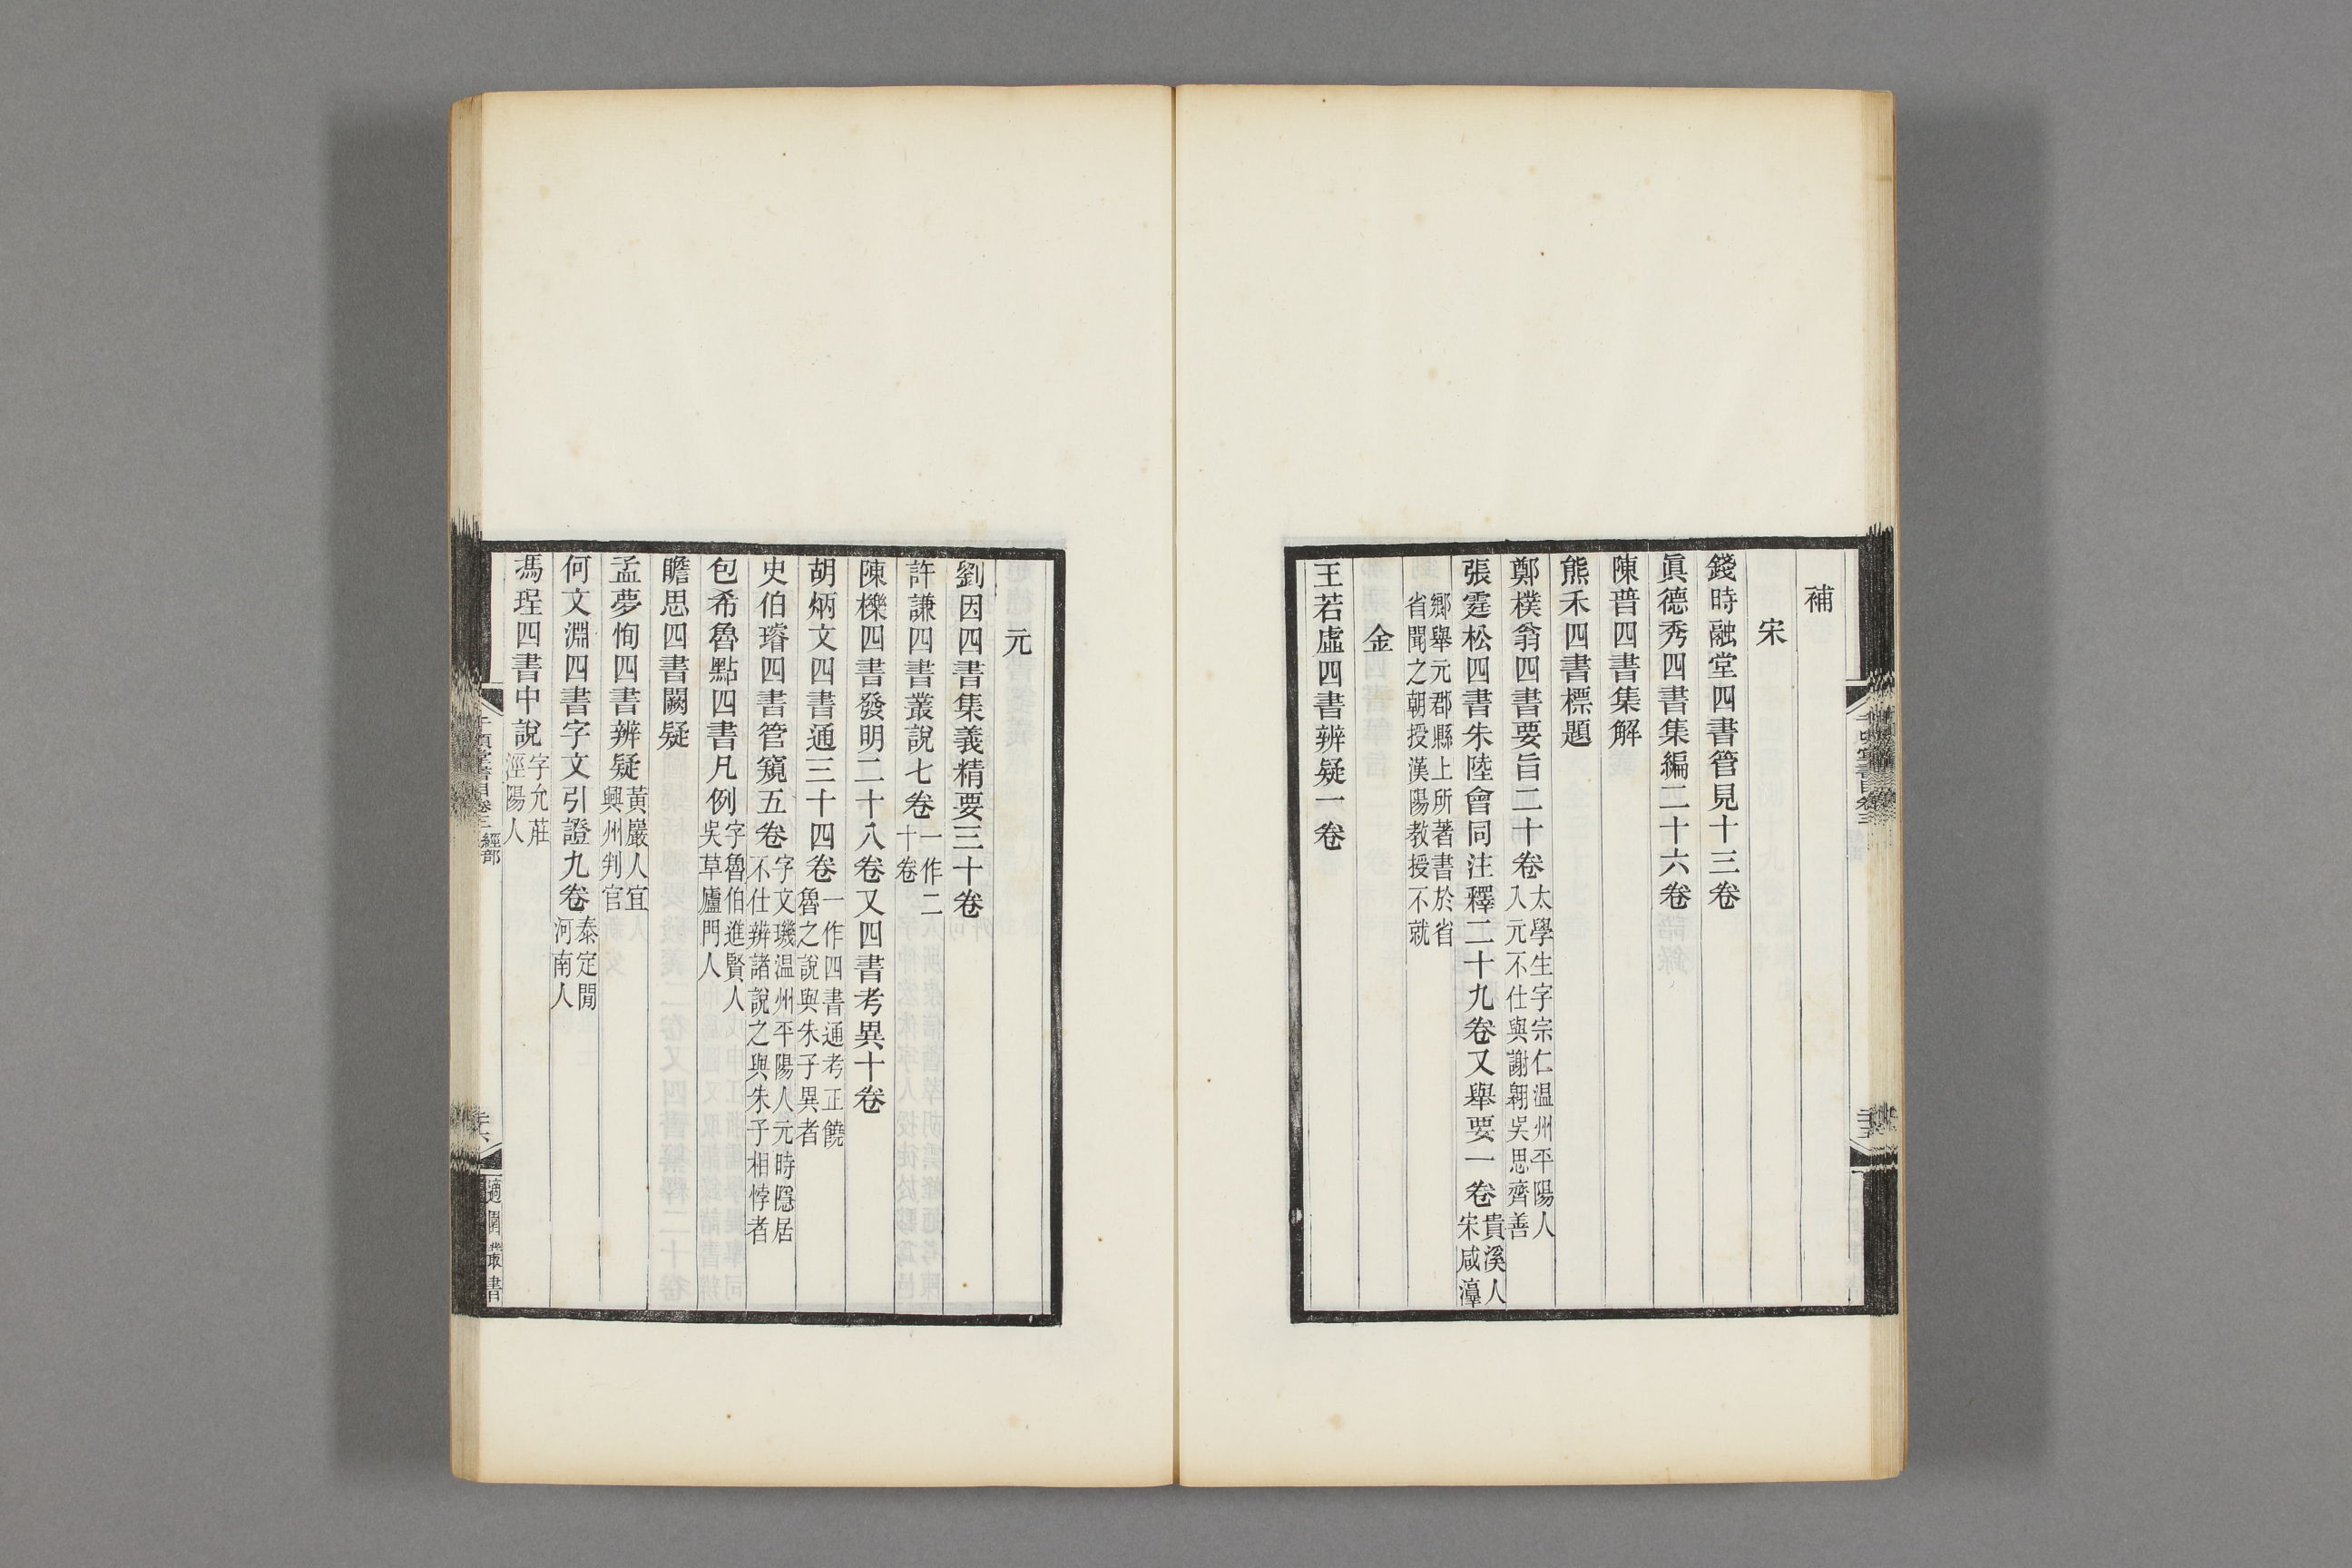 補
宋
錢時融堂四書管見十三卷
眞德秀四書集編二十六卷
陳普四書集解
熊禾四書標題
鄭樸翁四書要旨二十卷太學生字宗仁温州平陽人入元不仕與謝翱吳思齊善
張霆松四書朱陸會同注釋二十九卷又舉要一卷貴溪人宋咸淳
鄉舉元郡縣上所著書於省省聞之朝授漢陽教授不就
金
王若虛四書辨疑一卷
元
劉因四書集義精要三十卷
許謙四書叢說七卷一作二十卷
陳櫟四書發明二十八卷又四書考異十卷
胡炳文四書通三十四卷一作四書通考正饒魯之說與朱子異者
史伯璿四書管窺五卷字文璣温州平陽人元時隱居不仕辨諸說之與朱子相悖者
包希魯點四書凡例字魯伯進賢人吳草廬門人
瞻思四書闕疑
孟夢恂四書辨疑黃巖人宜興州判官
何文淵四書字文引證九卷泰定閒河南人
馮珵四書中說字允莊涇陽人
千頃堂書目卷三 經部
適園叢書